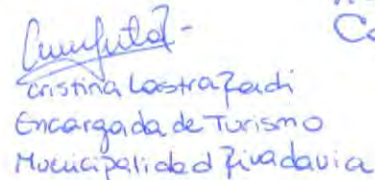 Co
Cristina Lastra Zadi
Encargada de Turismo
Municipalidad Rivadavia